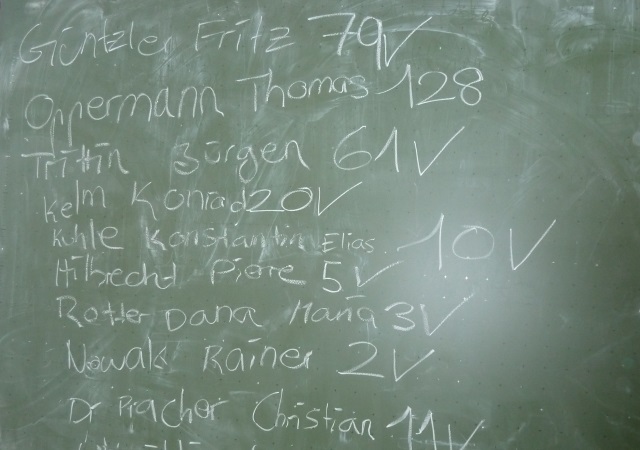 Güntzler Fritz 79✓
Oppermann Thomas 128
Trittin Jürgen 61✓
Kelm Konrad 20✓
Kuhle Konstantin Elias 10✓
Hilbrecht Pierre 5✓
Rotter Dana Maria 3✓
Nowak Rainer 2✓
Dr Pracher Christian 11✓